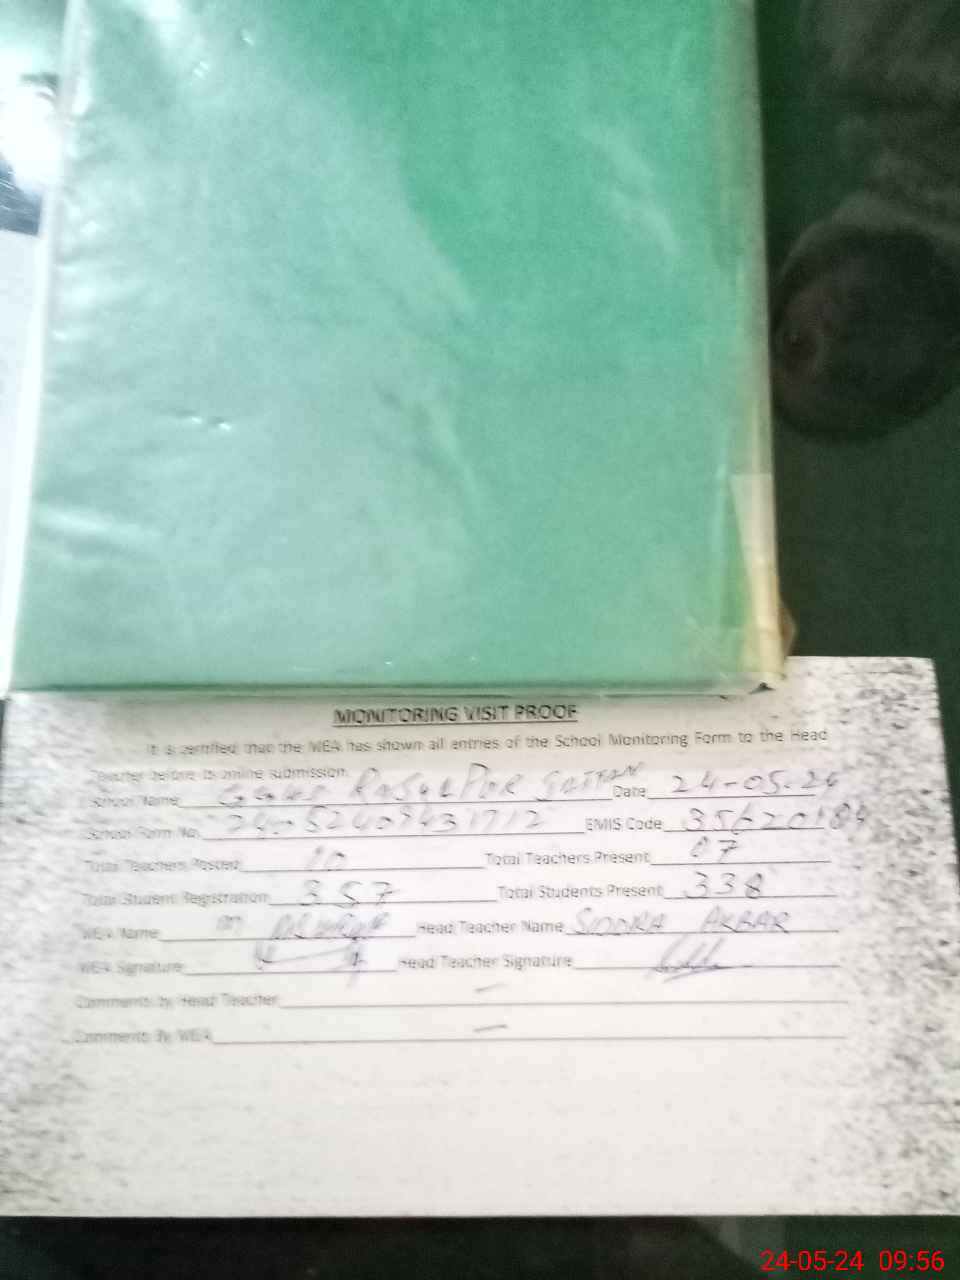 MONITORING VISIT PROOF
It is certified that the MEA has shown all entries of the School Monitoring Form to the Head
Teacher before its online submission.
School Name RASULPUR Date 24-05-24
School Form No. EMIS Code 35620184
Total Teachers Posted 10 Total Teachers Present 07
Total Student Registration 357 Total Students Present 338
MEA Name M Head Teacher Name SIDDRA AKBAR
MEA Signature Head Teacher Signature
Comments by Head Teacher —
Comments By MEA —
24-05-24 09:56